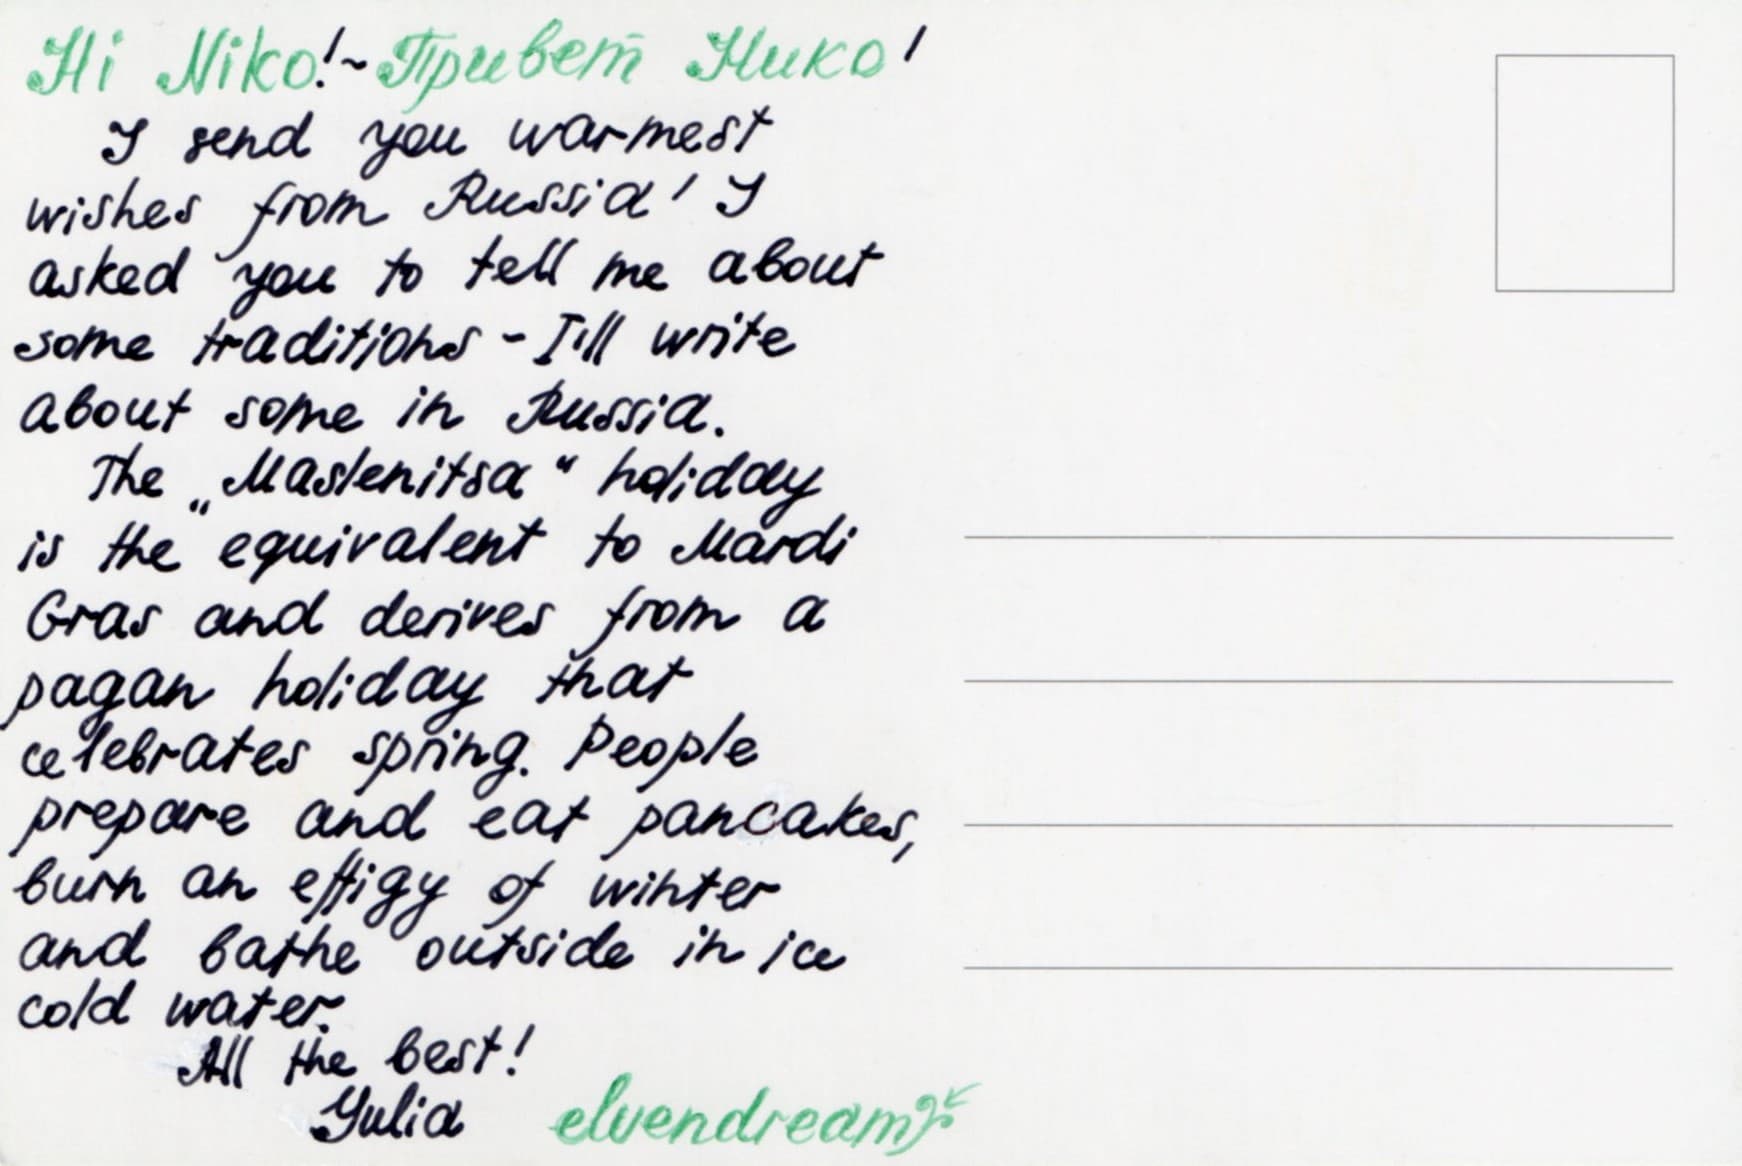 Hi Niko!~Привет Нико!
I send you warmest
wishes from Russia! I
asked you to tell me about
some traditions - I'll write
about some in Russia.
The „Maslenitsa“ holiday
is the equivalent to Mardi
Gras and derives from a
pagan holiday that
celebrates spring. People
prepare and eat pancakes,
burn an effigy of winter
and bathe outside in ice
cold water.
All the best!
Yulia elvendream